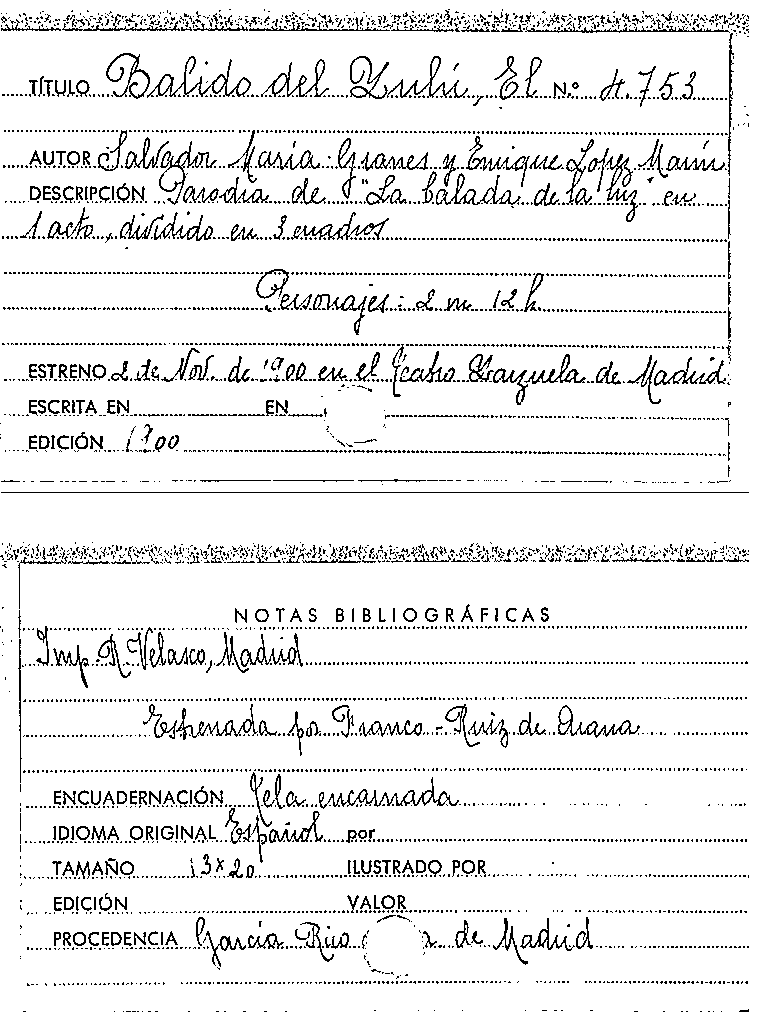 TÍTULO Balido del Zulú, El N.º 4.753
AUTOR Salvador María Granes y Enrique Lopez Marín
DESCRIPCIÓN Parodia de "La balada de la luz" en
1 acto, dividido en 3 cuadros
Personajes: 2 m 12 h
ESTRENO 2 de Nov. de 1900 en el Teatro Zarzuela de Madrid
ESCRITA EN EN
EDICIÓN 1900
NOTAS BIBLIOGRÁFICAS
Imp. R. Velasco, Madrid
Estrenada por Franco - Ruiz de Arana
ENCUADERNACIÓN Tela encarnada
IDIOMA ORIGINAL Español por
TAMAÑO 13 x 20 ILUSTRADO POR
EDICIÓN VALOR
PROCEDENCIA García Rico de Madrid